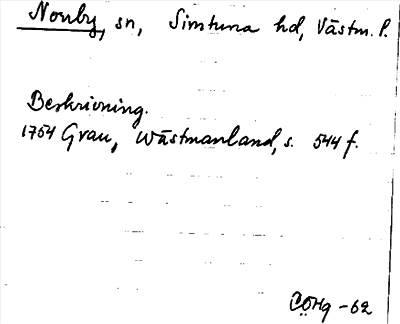 Norrby, sn, Simtuna hd, Västm. l.
Beskrivning.
1754 Grau, Wästmanland, s. 544 f.
CÖHg -62